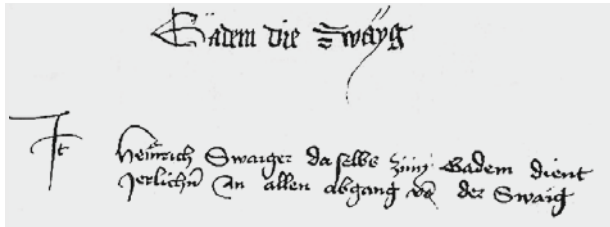 Gädem die Swäyg
It Heinrich Swaiger daselbs zum Gadem dient
Jerlichn An allen abgang vo der Swaig